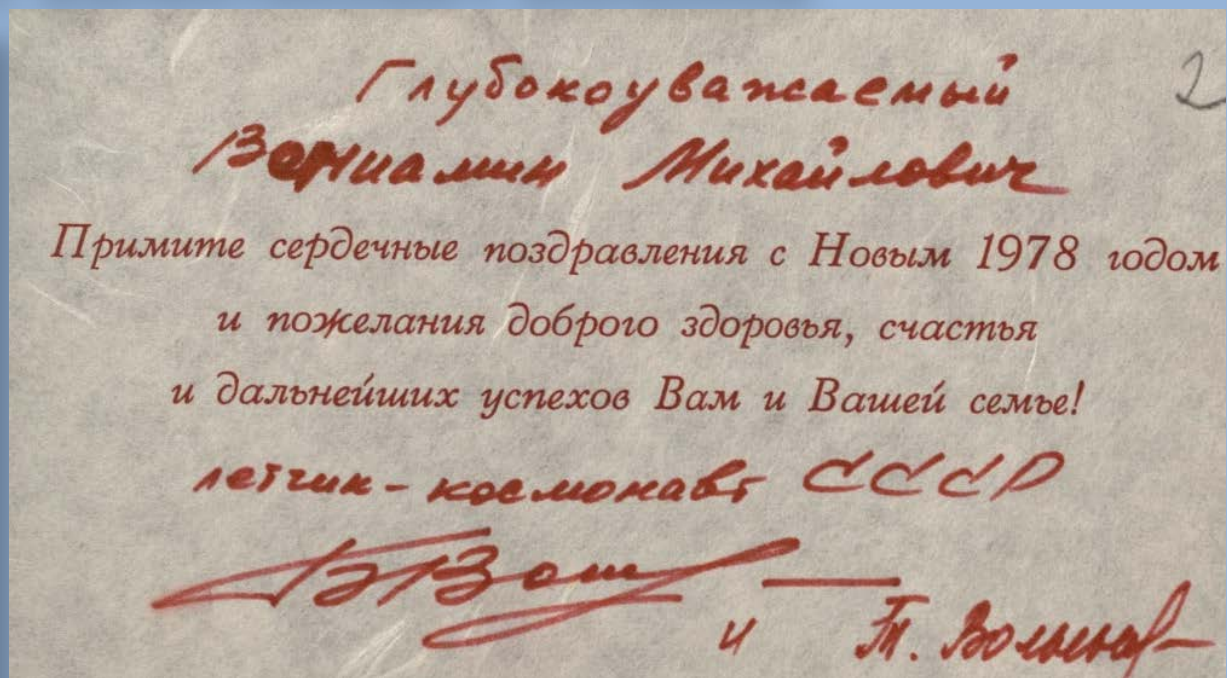 2
Глубокоуважаемый
Вениамин Михайлович
Примите сердечные поздравления с Новым 1978 годом
и пожелания доброго здоровья, счастья
и дальнейших успехов Вам и Вашей семье!
летчик-космонавт СССР
и Т.